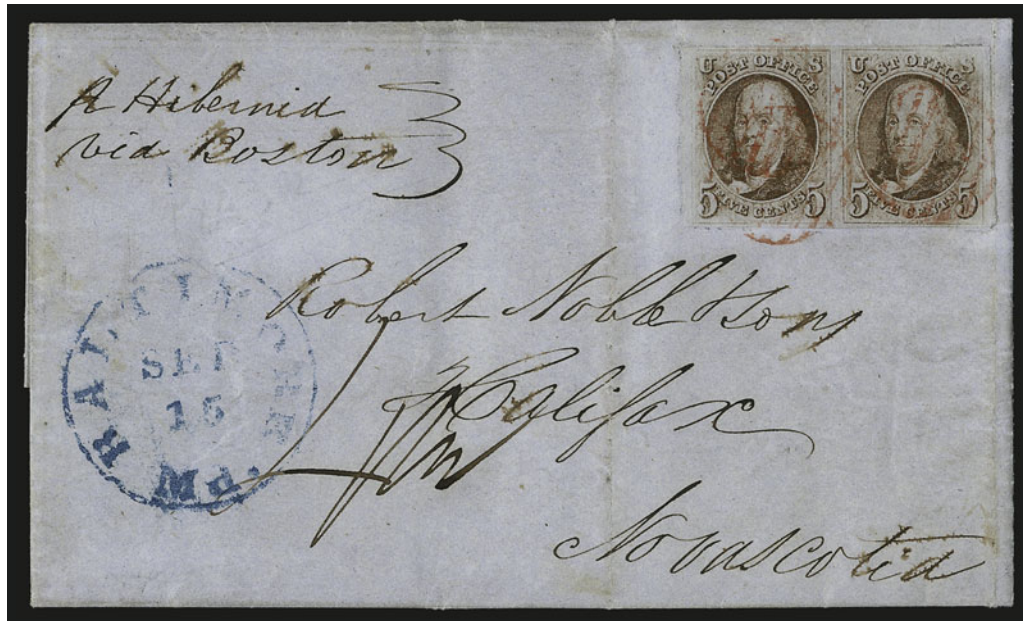 P Hibernia
via Boston
U S
POST OFFICE
FIVE CENTS
5 5
U S
POST OFFICE
FIVE CENTS
5 5
BALTIMORE
SEP
15
Robert Noble & Sons
Halifax
Novascotia